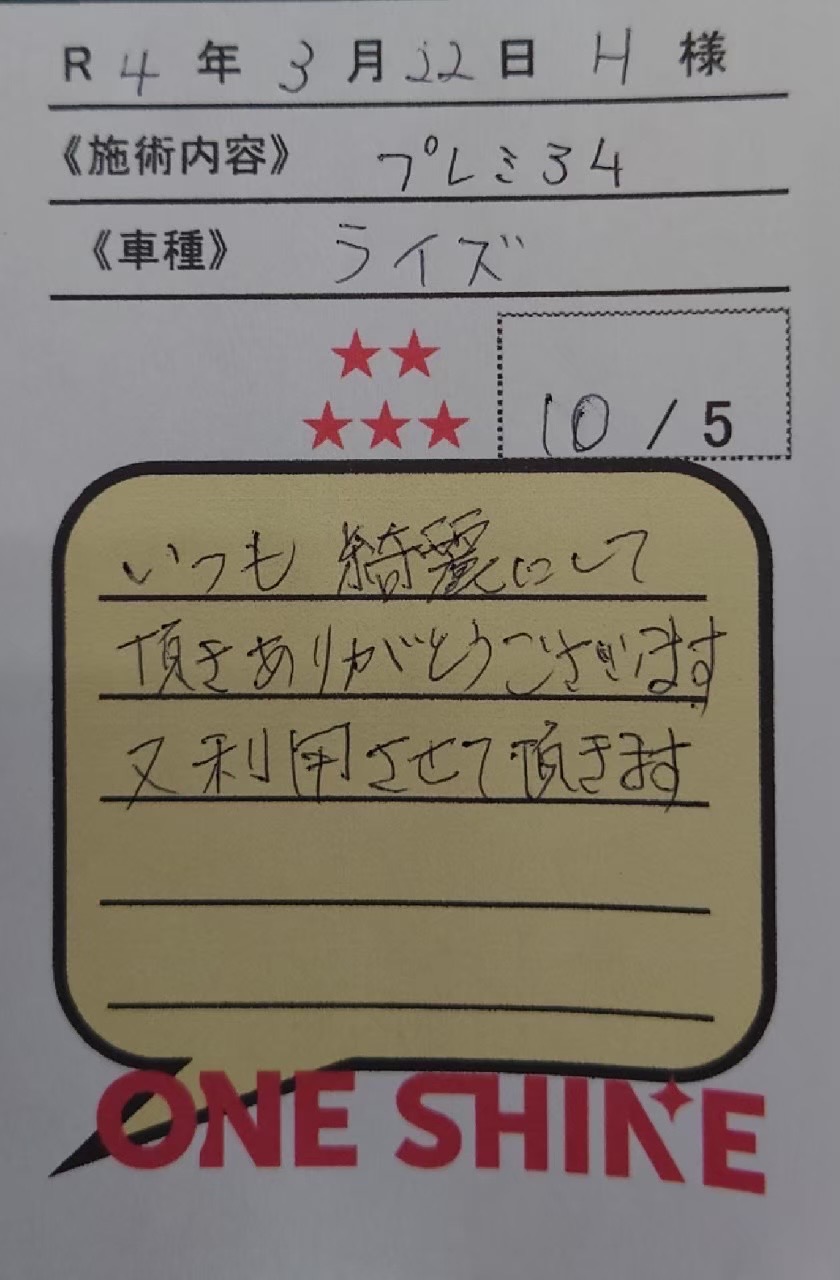 R 4 年 3 月 22 日 H 様
《施術内容》 プレミ34
《車種》 ライズ
10 / 5
いつも 綺麗にして
頂きありがとうございます
又利用させて頂きます
ONE SHINE